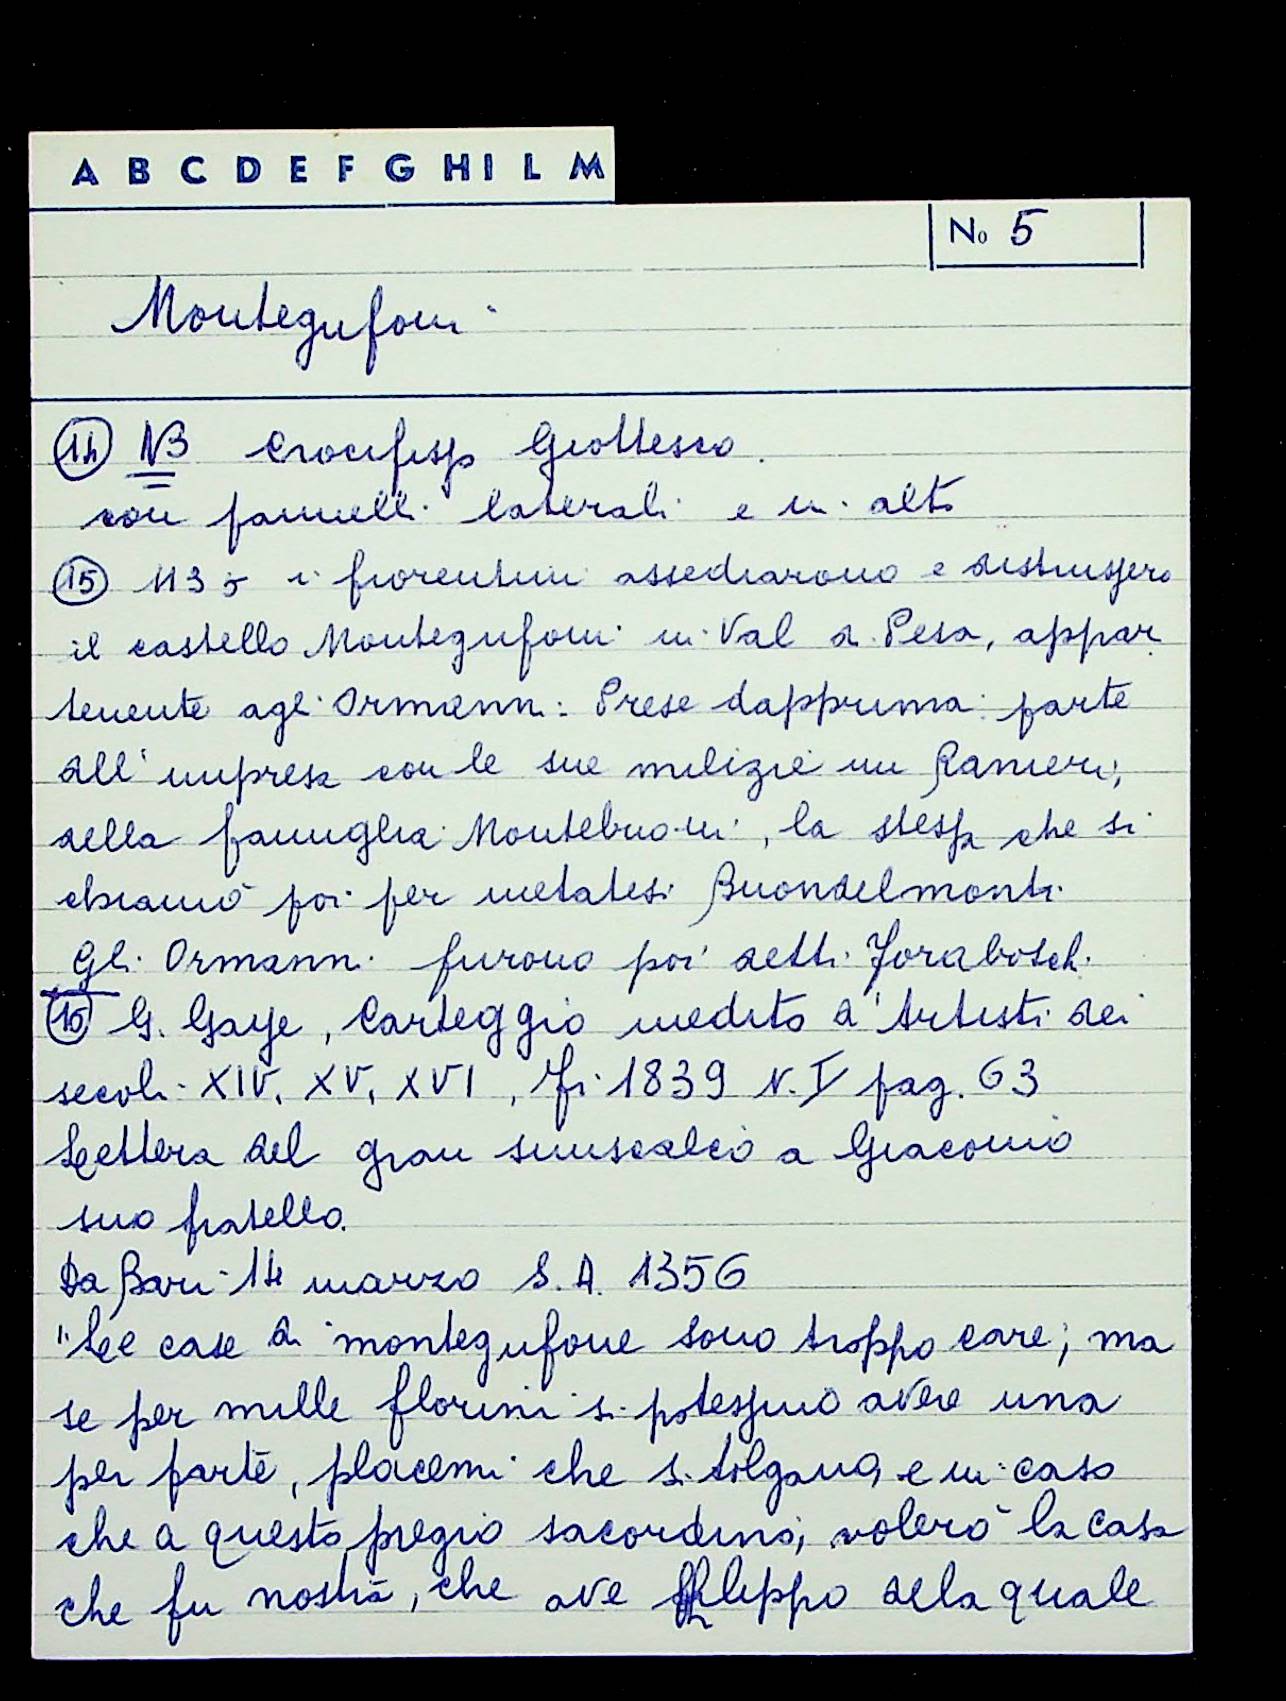 A B C D E F G H I L M
No 5
Montegufoni
14 NB Crocifisso Giottesco.
con pannelli laterali e in alto
15 1135 i fiorentini assediarono e distrussero
il castello Montegufoni in Val di Pesa, appar
tenente agli Ormanni. Prese dapprima parte
all'impresa con le sue milizie un Ranieri,
della famiglia Montebuoni, la stessa che si
chiamò poi per metatesi Buondelmonti.
Gli Ormanni furono poi detti Foraboschi.
16 G. Gaye, Carteggio inedito d'Artisti dei
secoli XIV, XV, XVI, Fi 1839 V. I pag. 63
Lettera del gran siniscalco a Giacomo
suo fratello.
Da Bari 14 marzo S. A. 1356
"Le case di montegufone sono troppo care; ma
se per mille florini si potessino avere una
per parte, placemi che si tolgano, e in caso
che a questo pregio sacordino, volerò la casa
che fu nostra, che ave Filippo della quale